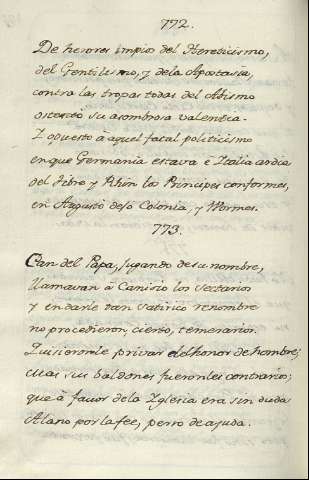 772.
De herores impios del Hereticismo,
del Gentilismo, y dela Apostasia,
contra las tropas todas del Abismo
ostentó su asombrosa valentia.
Y opuesto â aquel fatal politicismo
en que Germania estava è Italia ardia
del Tibre y Rhin los Principes conformes,
en Augusto dejó Colonia, y Wormes.
773.
Can del Papa, jugando de su nombre,
llamavan â Canisio los sectarios
y en darle tan satirico renombre
no procedieron, cierto, temerarios.
Quisieronle privar del honor de hombre;
mas sus baldones fueronles contrarios;
que â favor dela Yglesia era sin duda
Alano por la fee, perro de ajuda.